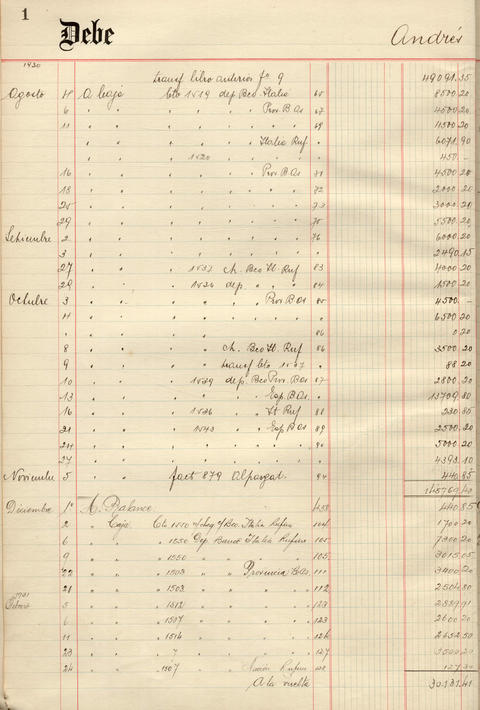 1
Debe Andrés
1930
transf libro anterior fº 9 49091.35
Agosto 4 A Caja Cte 1519 dep Bco Italia 65 8500 20
6 " " " " " Prov. B As 67 4500 20
11 " " " " " " 69 4500 20
" " " " " Italia Ruf " 6071.90
" " 1520 " " " " 450.-
16 " " " " " Prov. B As 71 4500 20
18 " " " " " " 72 2000 20
25 " " " " " " 73 3000 20
29 " " " " " " 75 5500 20
Setiembre 2 " " " " " " 76 6000 20
3 " " " " " " " 2490.15
27 " " " 1537 ch. Bco It. Ruf 83 4000 20
28 " " " 1536 dep " " 84 1500 20
Octubre 3 " " " " " Prov. B As 85 4500.-
4 " " " " " " " 6500 20
" " " " " " 86 0 20
8 " " " ch. Bco It. Ruf 86 3500 20
9 " " " transf cte 1537 " 88 20
10 " " " 1539 dep. Bco Prov. Bas 87 2800 20
13 " " " " " Esp. B As. " 13709 80
16 " " " 1536 " It Ruf 88 230 35
21 " " " 1543 " Esp B As 89 2500 20
24 " " " " " " 90 5000 20
27 " " " " " " " 4393.10
Noviembre 5 " " fact 879 Alpargat. 94 440.85
145769 40
Diciembre 1º A Balance 438 440.85
2 " Caja Italia Rufino 104 1700 20
6 " " " 1550 Dep. Banco Italia Rufino 105 7300 20
9 " " " 1550 " " " " 105 3015 05
22 " " " 1503 " " Provincia BAs 111 3400 20
21 " " " 1503 " " " 112 2504 80
1931
Febrero 5 " " 1512 " " " 123 2889 91
6 " " 1517 " " " 123 2600 20
11 " " 1514 " " " 124 2652 50
23 " " " " " " 127 3500 20
24 " " 1507 " Nación Rufino 128 127 30
A la vuelta 30131.41